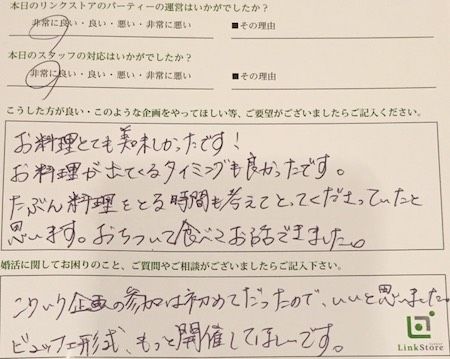 本日のリンクストアのパーティーの運営はいかがでしたか?
非常に良い・良い・悪い・非常に悪い ■その理由
本日のスタッフの対応はいかがでしたか?
非常に良い・良い・悪い・非常に悪い ■その理由
こうした方が良い・このような企画をやってほしい等、ご要望がございましたらご記入ください。
お料理とても美味しかったです!
お料理が出てくるタイミングも良かったです。
たぶん料理をとる時間も考えてとってくださっていたと
思います。おちついて食べてお話できました。
婚活に関してお困りのこと、ご質問やご相談がございましたらご記入下さい。
こういう企画の参加は初めてだったので、いいと思いました。
ビュッフェ形式、もっと開催してほしいです。
LinkStore